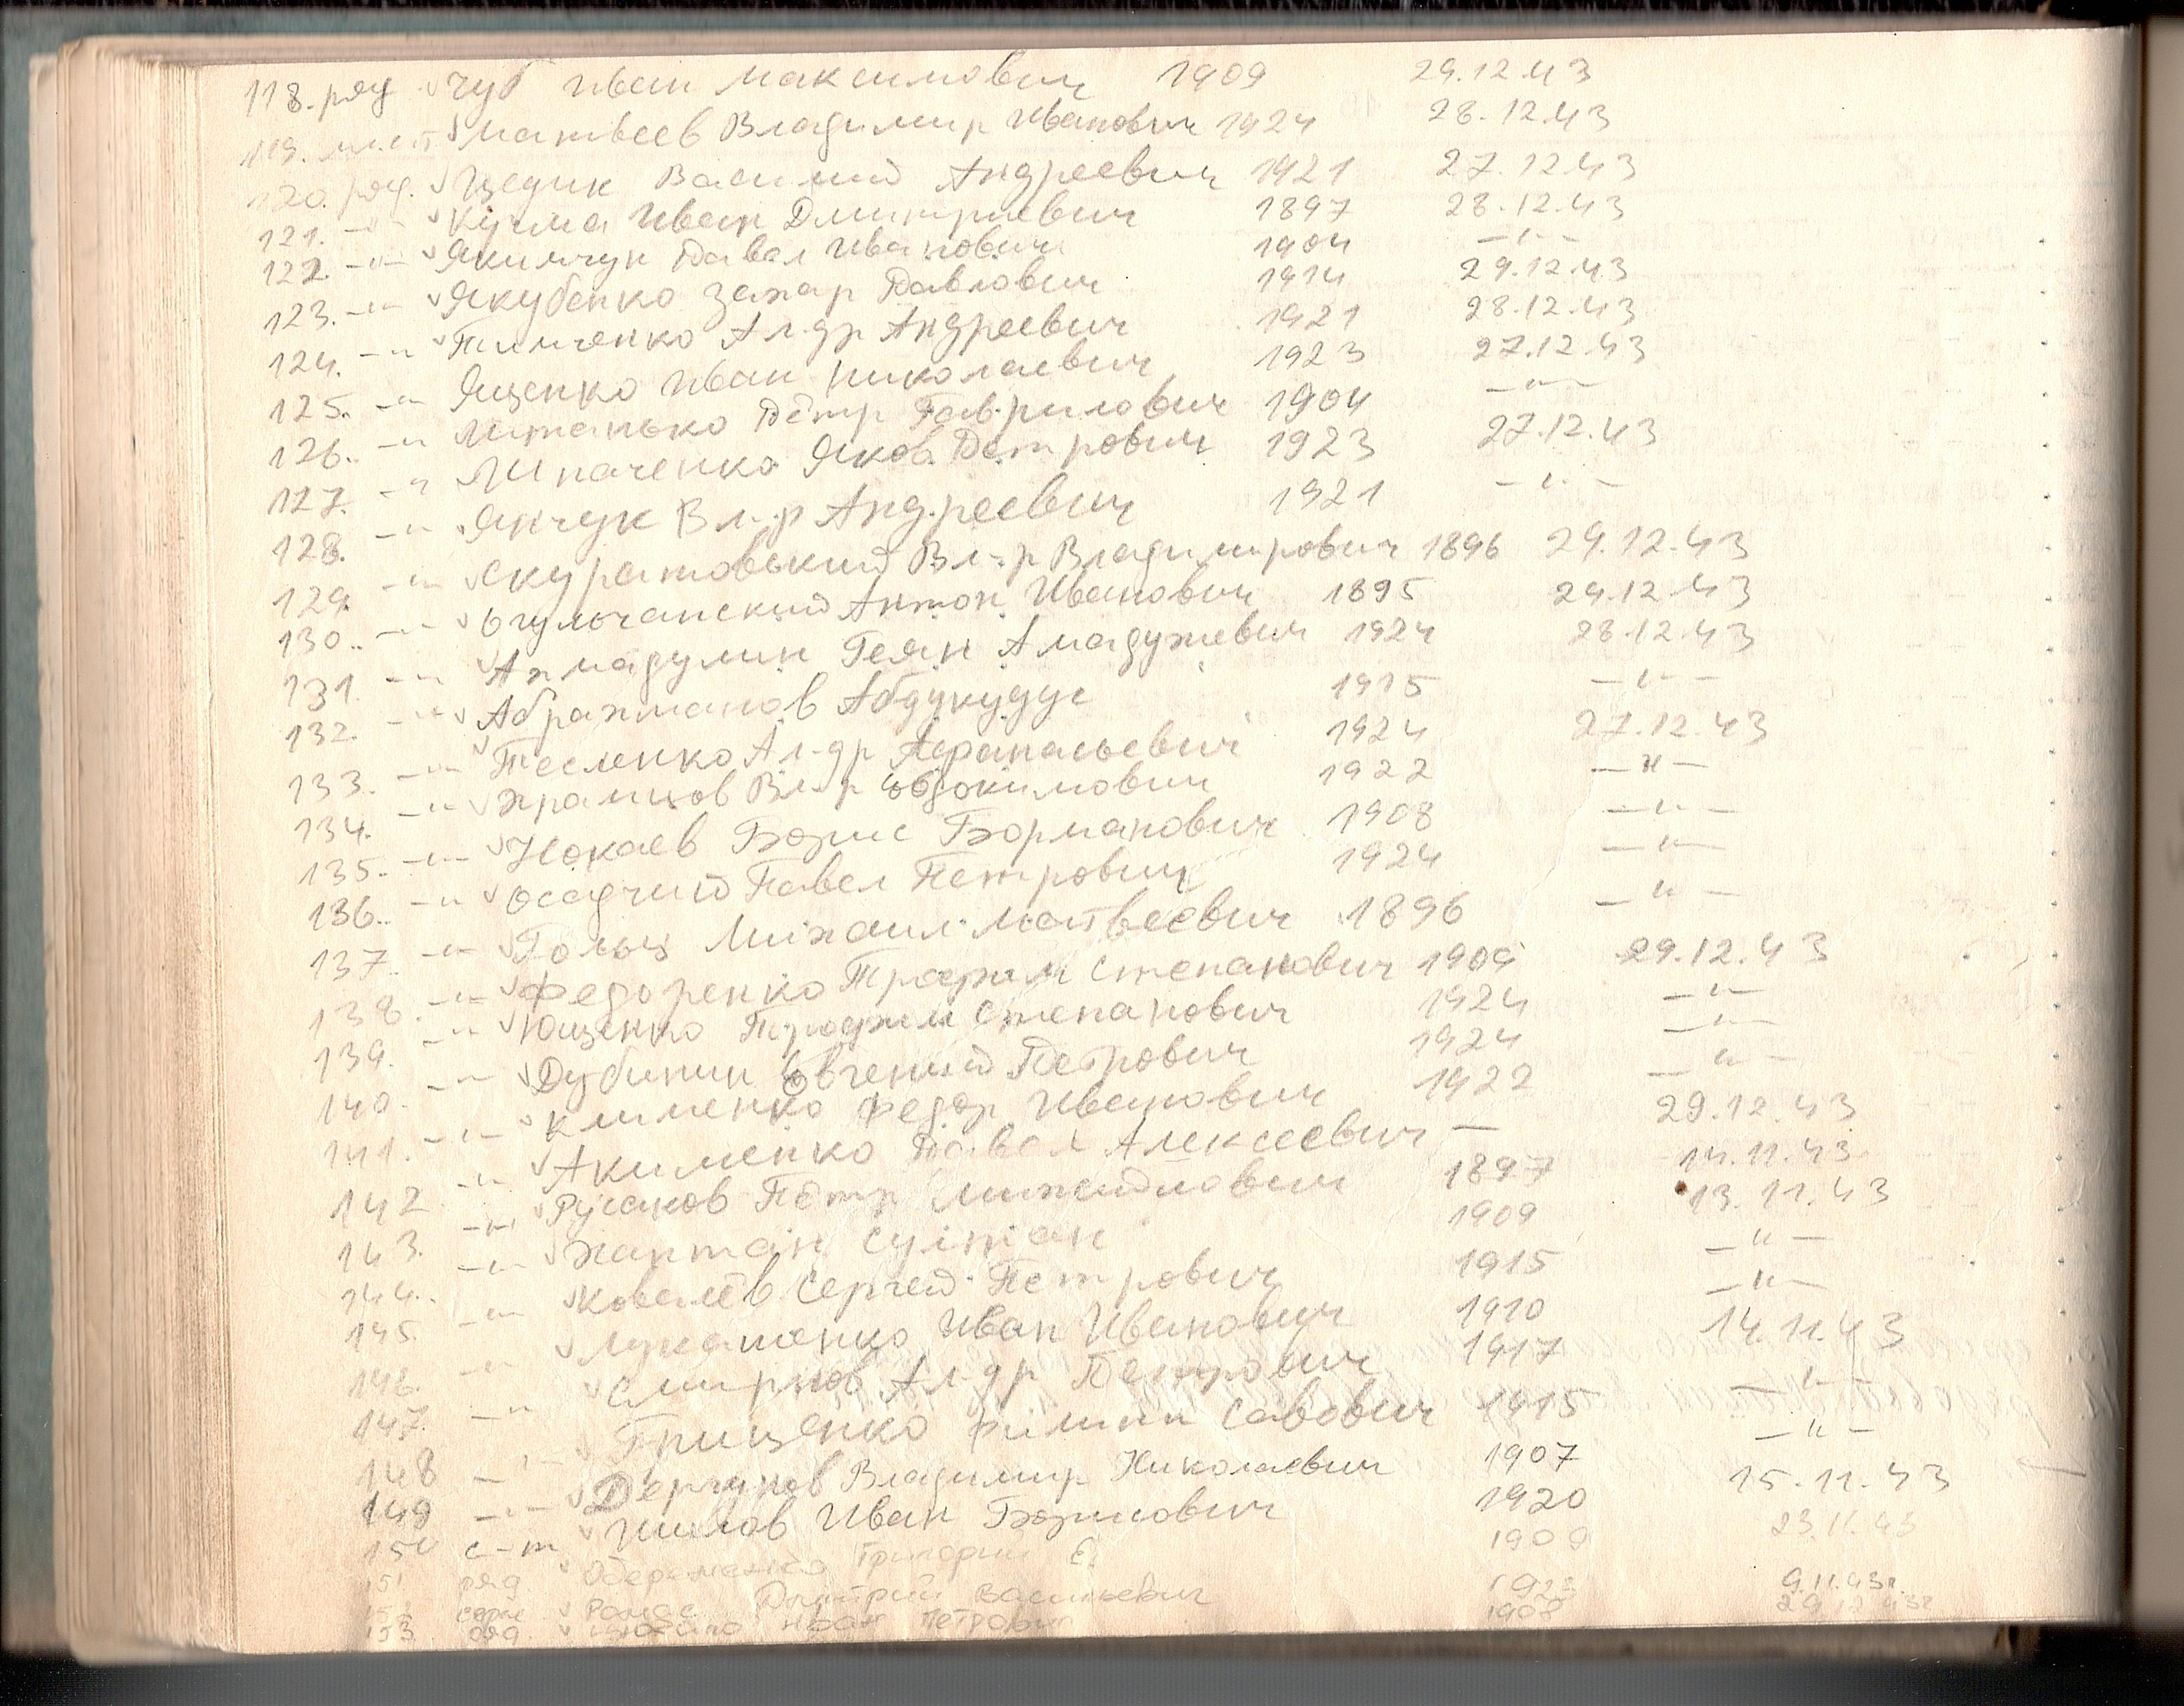 118. ряд Чуб Иван Максимович 1909 29.12.43
119. Матвеев Владимир Иванович 1924 28.12.43
120. ряд. Цедик Василий Андреевич 1921 27.12.43
121. -"- Кузма Иван Дмитриевич 1897 28.12.43
122. -"- Якимчук Павел Иванович 1904 -"-
123. -"- Якубенко Захар Павлович 1914 29.12.43
124. -"- Тимченко Ал-др Андреевич 1921 28.12.43
125. -"- Ященко Иван Николаевич 1923 27.12.43
126. -"- Литанько Пётр Гаврилович 1904 -"-
127. -"- Ипаченко Яков Петрович 1923 27.12.43
128. -"- Янчук Вл-р Андреевич 1921 -"-
129. -"- Скуратовский Вл-р Владимирович 1896 29.12.43
130. -"- Огульчанский Антон Иванович 1895 29.12.43
131. -"- Ахмадулин Геян 1924 28.12.43
132. -"- Абрахманов Абдукудус 1915 -"-
133. -"- Тесленко Ал-др Афанасьевич 1924 27.12.43
134. -"- Храмцов Вл-р Евдокимович 1922 -"-
135. -"- Нокаев Борис Борманович 1908 -"-
136. -"- Осадчий Павел Петрович 1924 -"-
137. -"- Гольц Михаил Матвеевич 1896 -"-
138. -"- Федоренко Трофим Степанович 1909 29.12.43
139. -"- Ющенко Трофим Степанович 1924 -"-
140. -"- Дубинин Евгений Петрович 1924 -"-
141. -"- Клименко Федор Иванович 1922 -"-
142 -"- Акименко Павел Алексеевич — 29.12.43
143. -"- Русаков Пётр Михайлович 1897 14.11.43
144. -"- Хаптан Султан 1909 13.11.43
145. -"- Ковалёв Сергей Петрович 1915 -"-
146. -"- Лукашенко Иван Иванович 1910 -"-
147. -"- Смирнов Ал-др Петрович 1917 14.11.43
148 -"- Грищенко Филипп Савович 1915 -"-
149 -"- Дергунов Владимир Николаевич 1907 -"-
150 с-т Шилов Иван Борисович 1920 15.11.43
151 ряд Григорий Е. 1909 23.11.43
152 серж Дмитрий Васильевич 1923 9.11.43г.
153 ряд Иван Петрович 1908